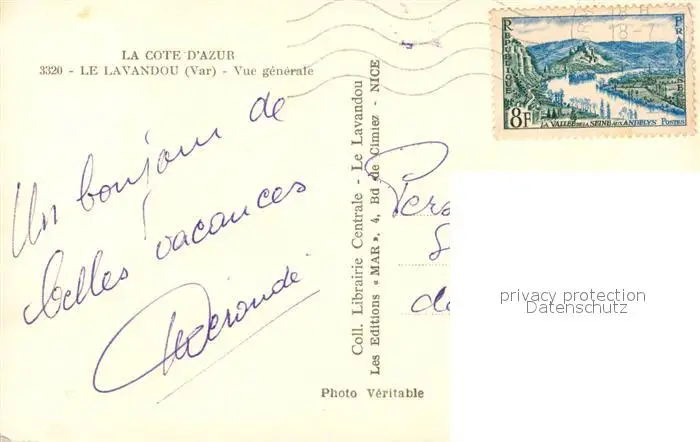 LA COTE D'AZUR
3320 - LE LAVANDOU (Var) - Vue générale
Un bonjour de
belles vacances
Coll. Librairie Centrale - Le Lavandou
Les Editions « MAR », 4, Bd de Cimiez - NICE
Photo Véritable
RÉPUBLIQUE
FRANÇAISE
8F
LA VALLÉE DE LA SEINE AUX ANDELYS POSTES
18-7
Pers
de
privacy protection
Datenschutz